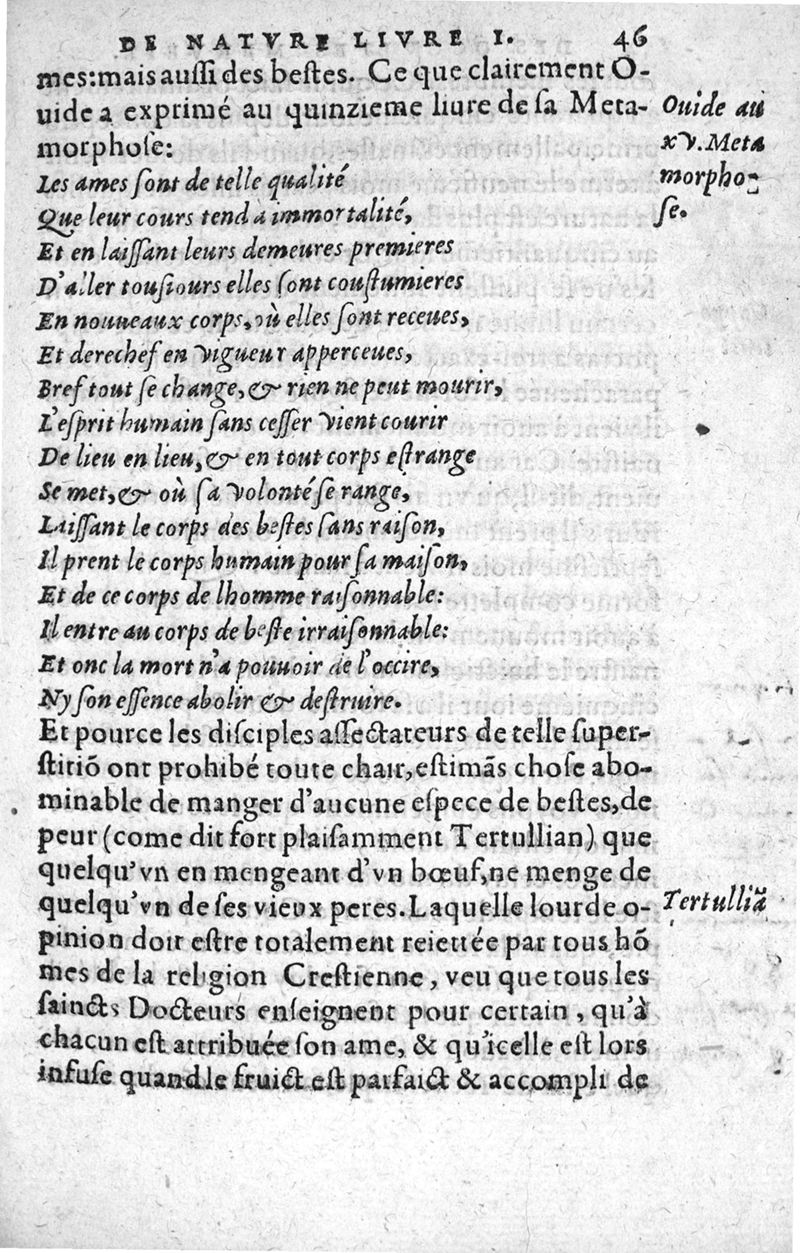 DE NATVRE LIVRE I. 46
mes:mais auſſi des beſtes. Ce que clairement O-
uide a exprimé au quinzieme liure de ſa Meta-
morphoſe:
Ouide au
xv. Meta
morpho-
ſe.
Les ames ſont de telle qualité
Que leur cours tend à immortalité,
Et en laiſſant leurs demeures premieres
D'aller touſiours elles ſont couſtumieres
En nouueaux corps, où elles ſont receues,
Et derechef en vigueur apperceues,
Bref tout ſe change, & rien ne peut mourir,
L'eſprit humain ſans ceſſer vient courir
De lieu en lieu, & en tout corps eſtrange
Se met, & où ſa volonté ſe range,
Laiſſant le corps des beſtes ſans raiſon,
Il prent le corps humain pour ſa maiſon,
Et de ce corps de lhomme raiſonnable:
Il entre au corps de beſte irraiſonnable:
Et onc la mort n'a pouuoir de l'occire,
Ny ſon eſſence abolir & deſtruire.
Et pource les diſciples aſſectateurs de telle ſuper-
ſtitiõ ont prohibé toute chair, eſtimãs choſe abo-
minable de manger d'aucune eſpece de beſtes, de
peur (come dit fort plaiſamment Tertullian) que
quelqu'vn en mengeant d'vn bœuf, ne menge de
quelqu'vn de ſes vieux peres. Laquelle lourde o-
Tertulliã
pinion doit eſtre totalement reiettée par tous hõ
mes de la religion Creſtienne, veu que tous les
ſaincts Docteurs enſeignent pour certain, qu'à
chacun eſt attribuée ſon ame, & qu'icelle eſt lors
infuſe quand le fruict eſt parfaict & accompli de